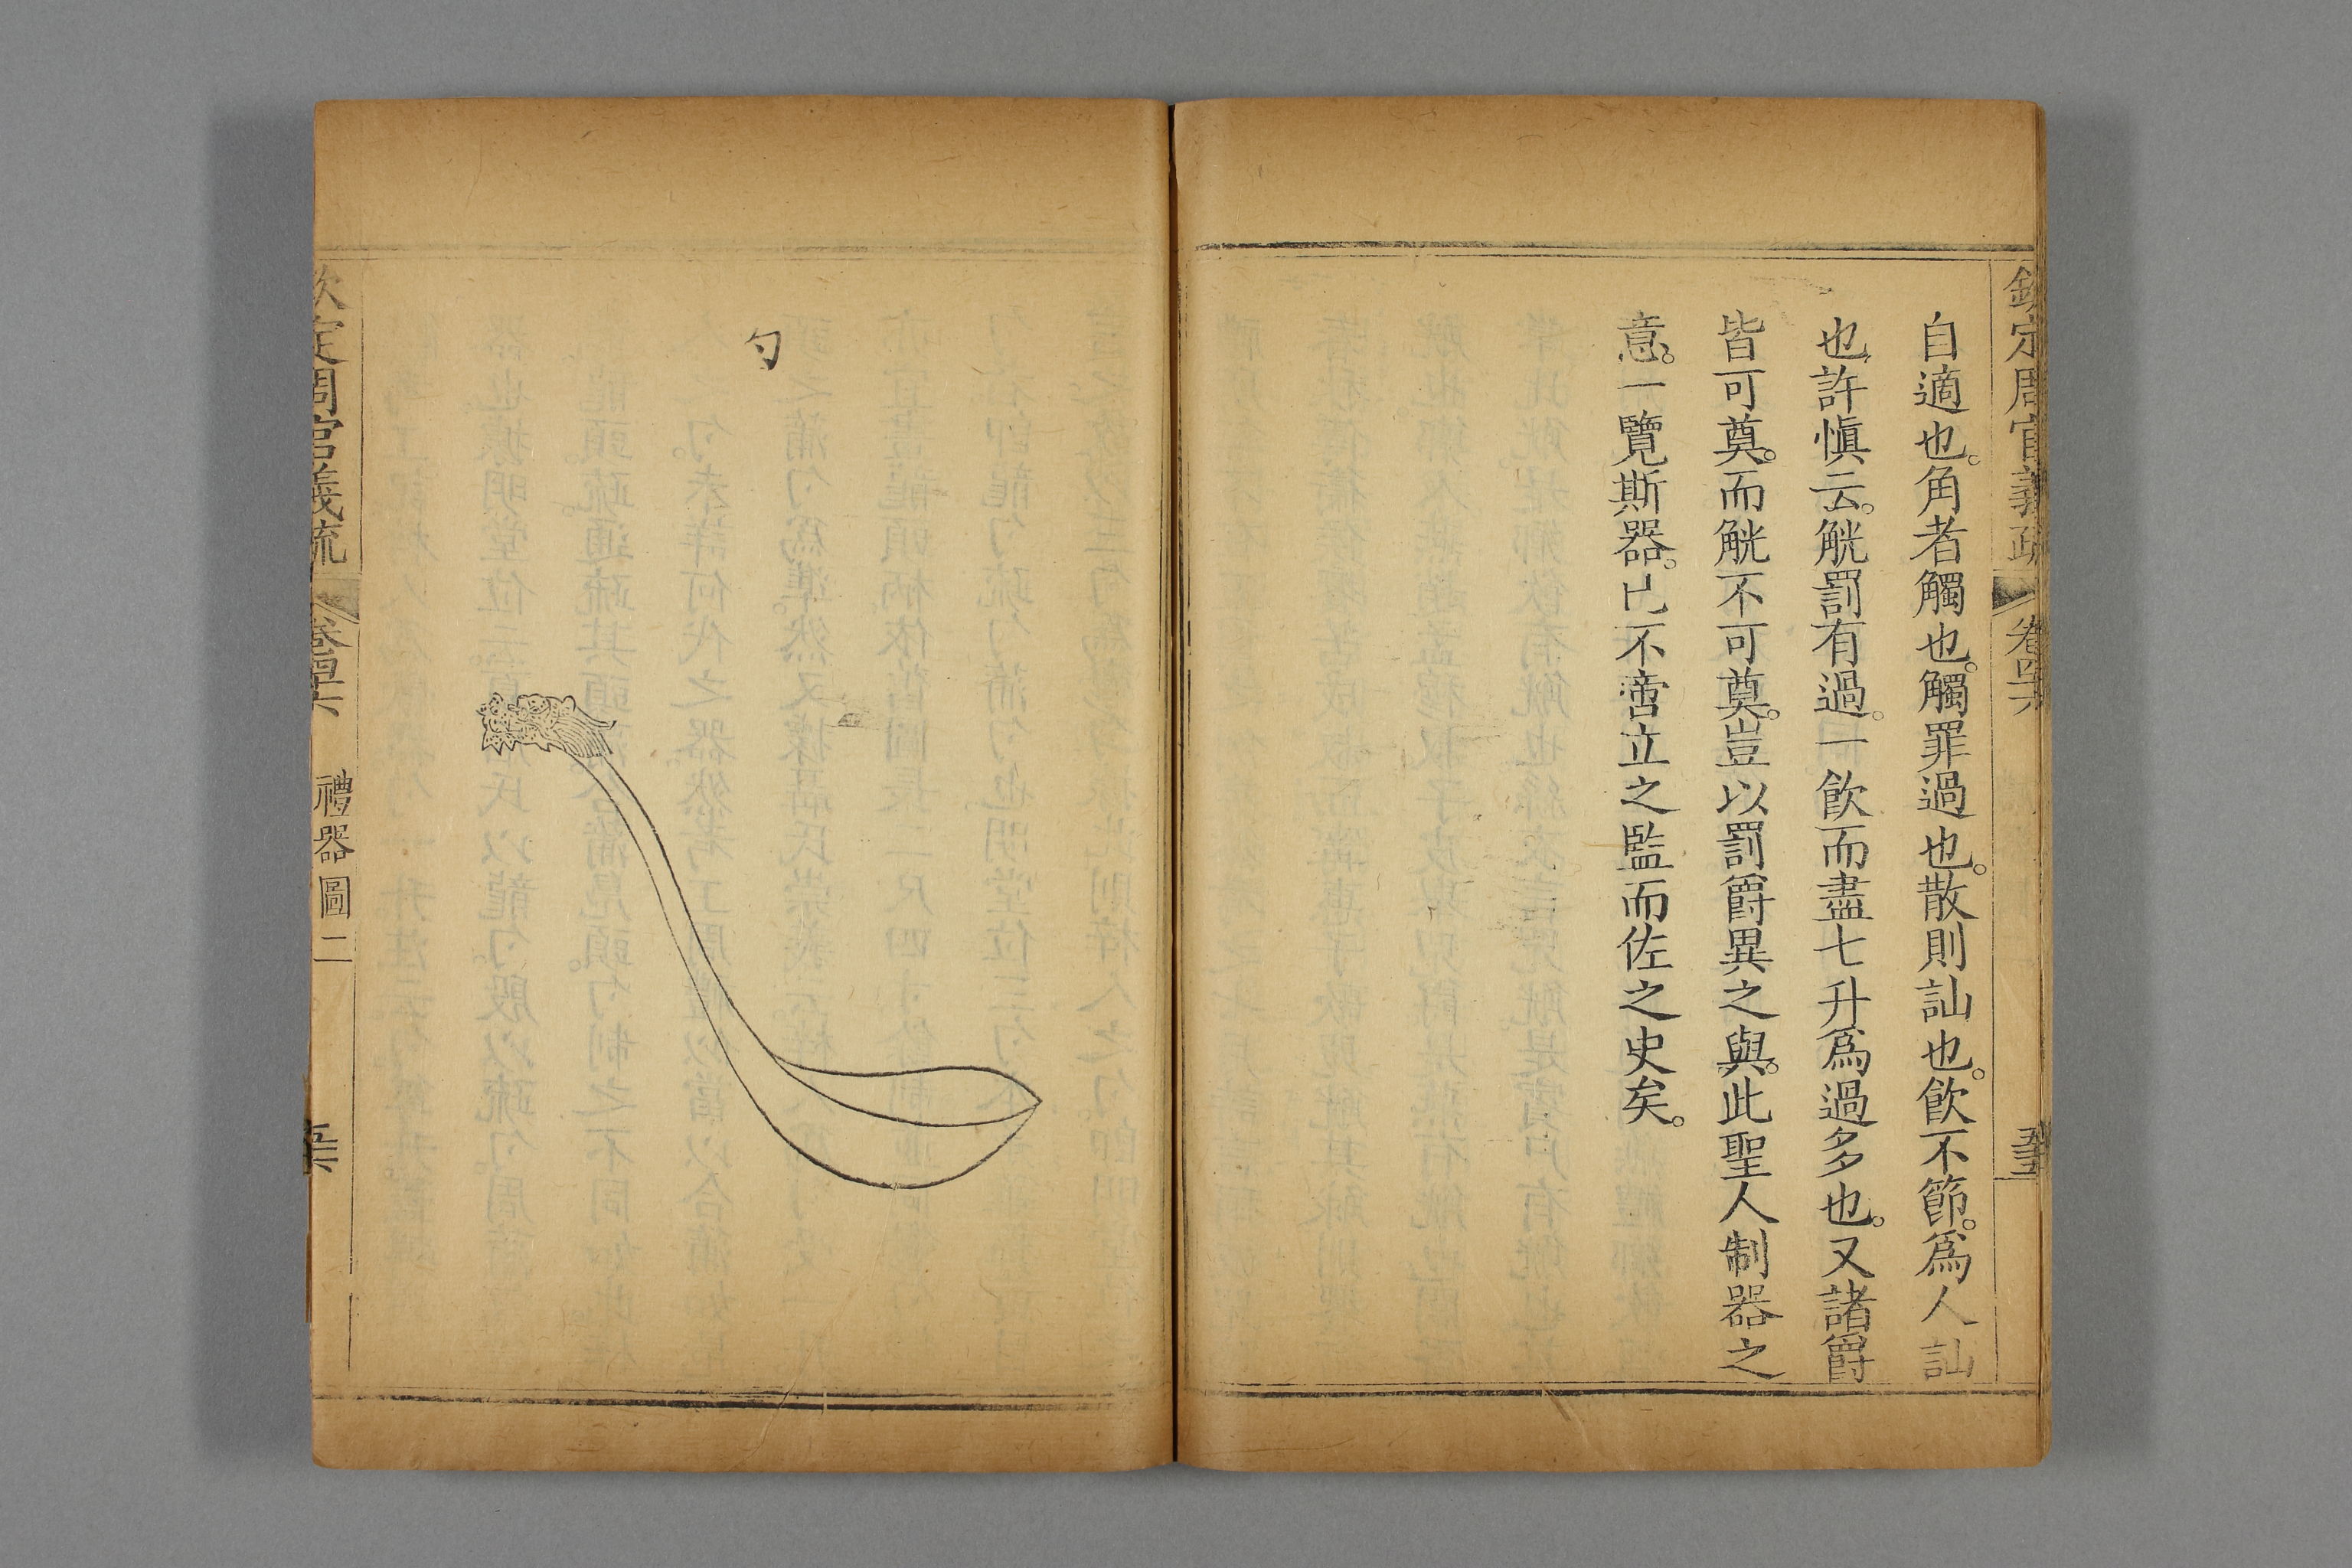 欽定周官義疏 卷四十六
五十五
自適也。角者觸也。觸罪過也。散則訕也。飲不節。爲人訕
也。許愼云。觥罰有過。一飲而盡七升爲過多也。又諸爵
皆可奠。而觥不可奠。豈以罰爵異之與。此聖人制器之
意。一覽斯器。已不啻立之監而佐之史矣。
勺
欽定周官義疏 卷四十六 禮器圖二
五十六